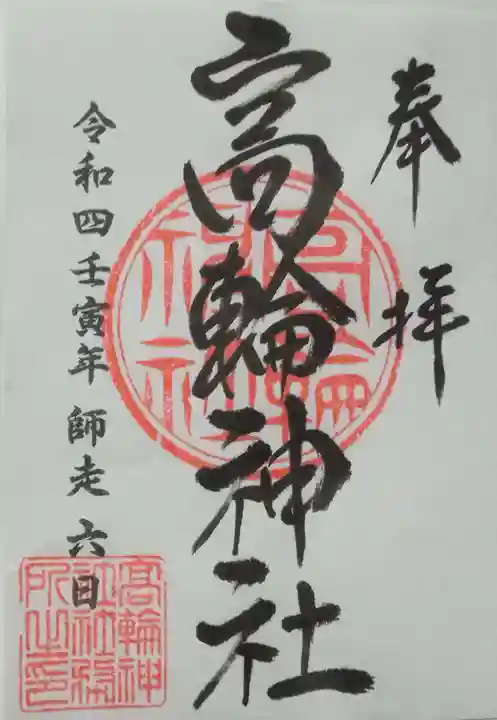 奉拝
高輪神社
令和四壬寅年 師走 六日
高輪神社
高輪神社社務所之印